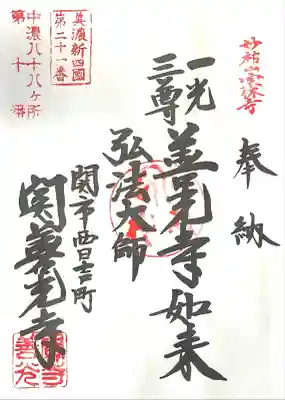 奉納
妙祐山宗休寺
一光三尊 善光寺如来
弘法大師
関市西日吉町
関善光寺
美濃新四國
第二十一番
中濃八十八ヶ所
第十番